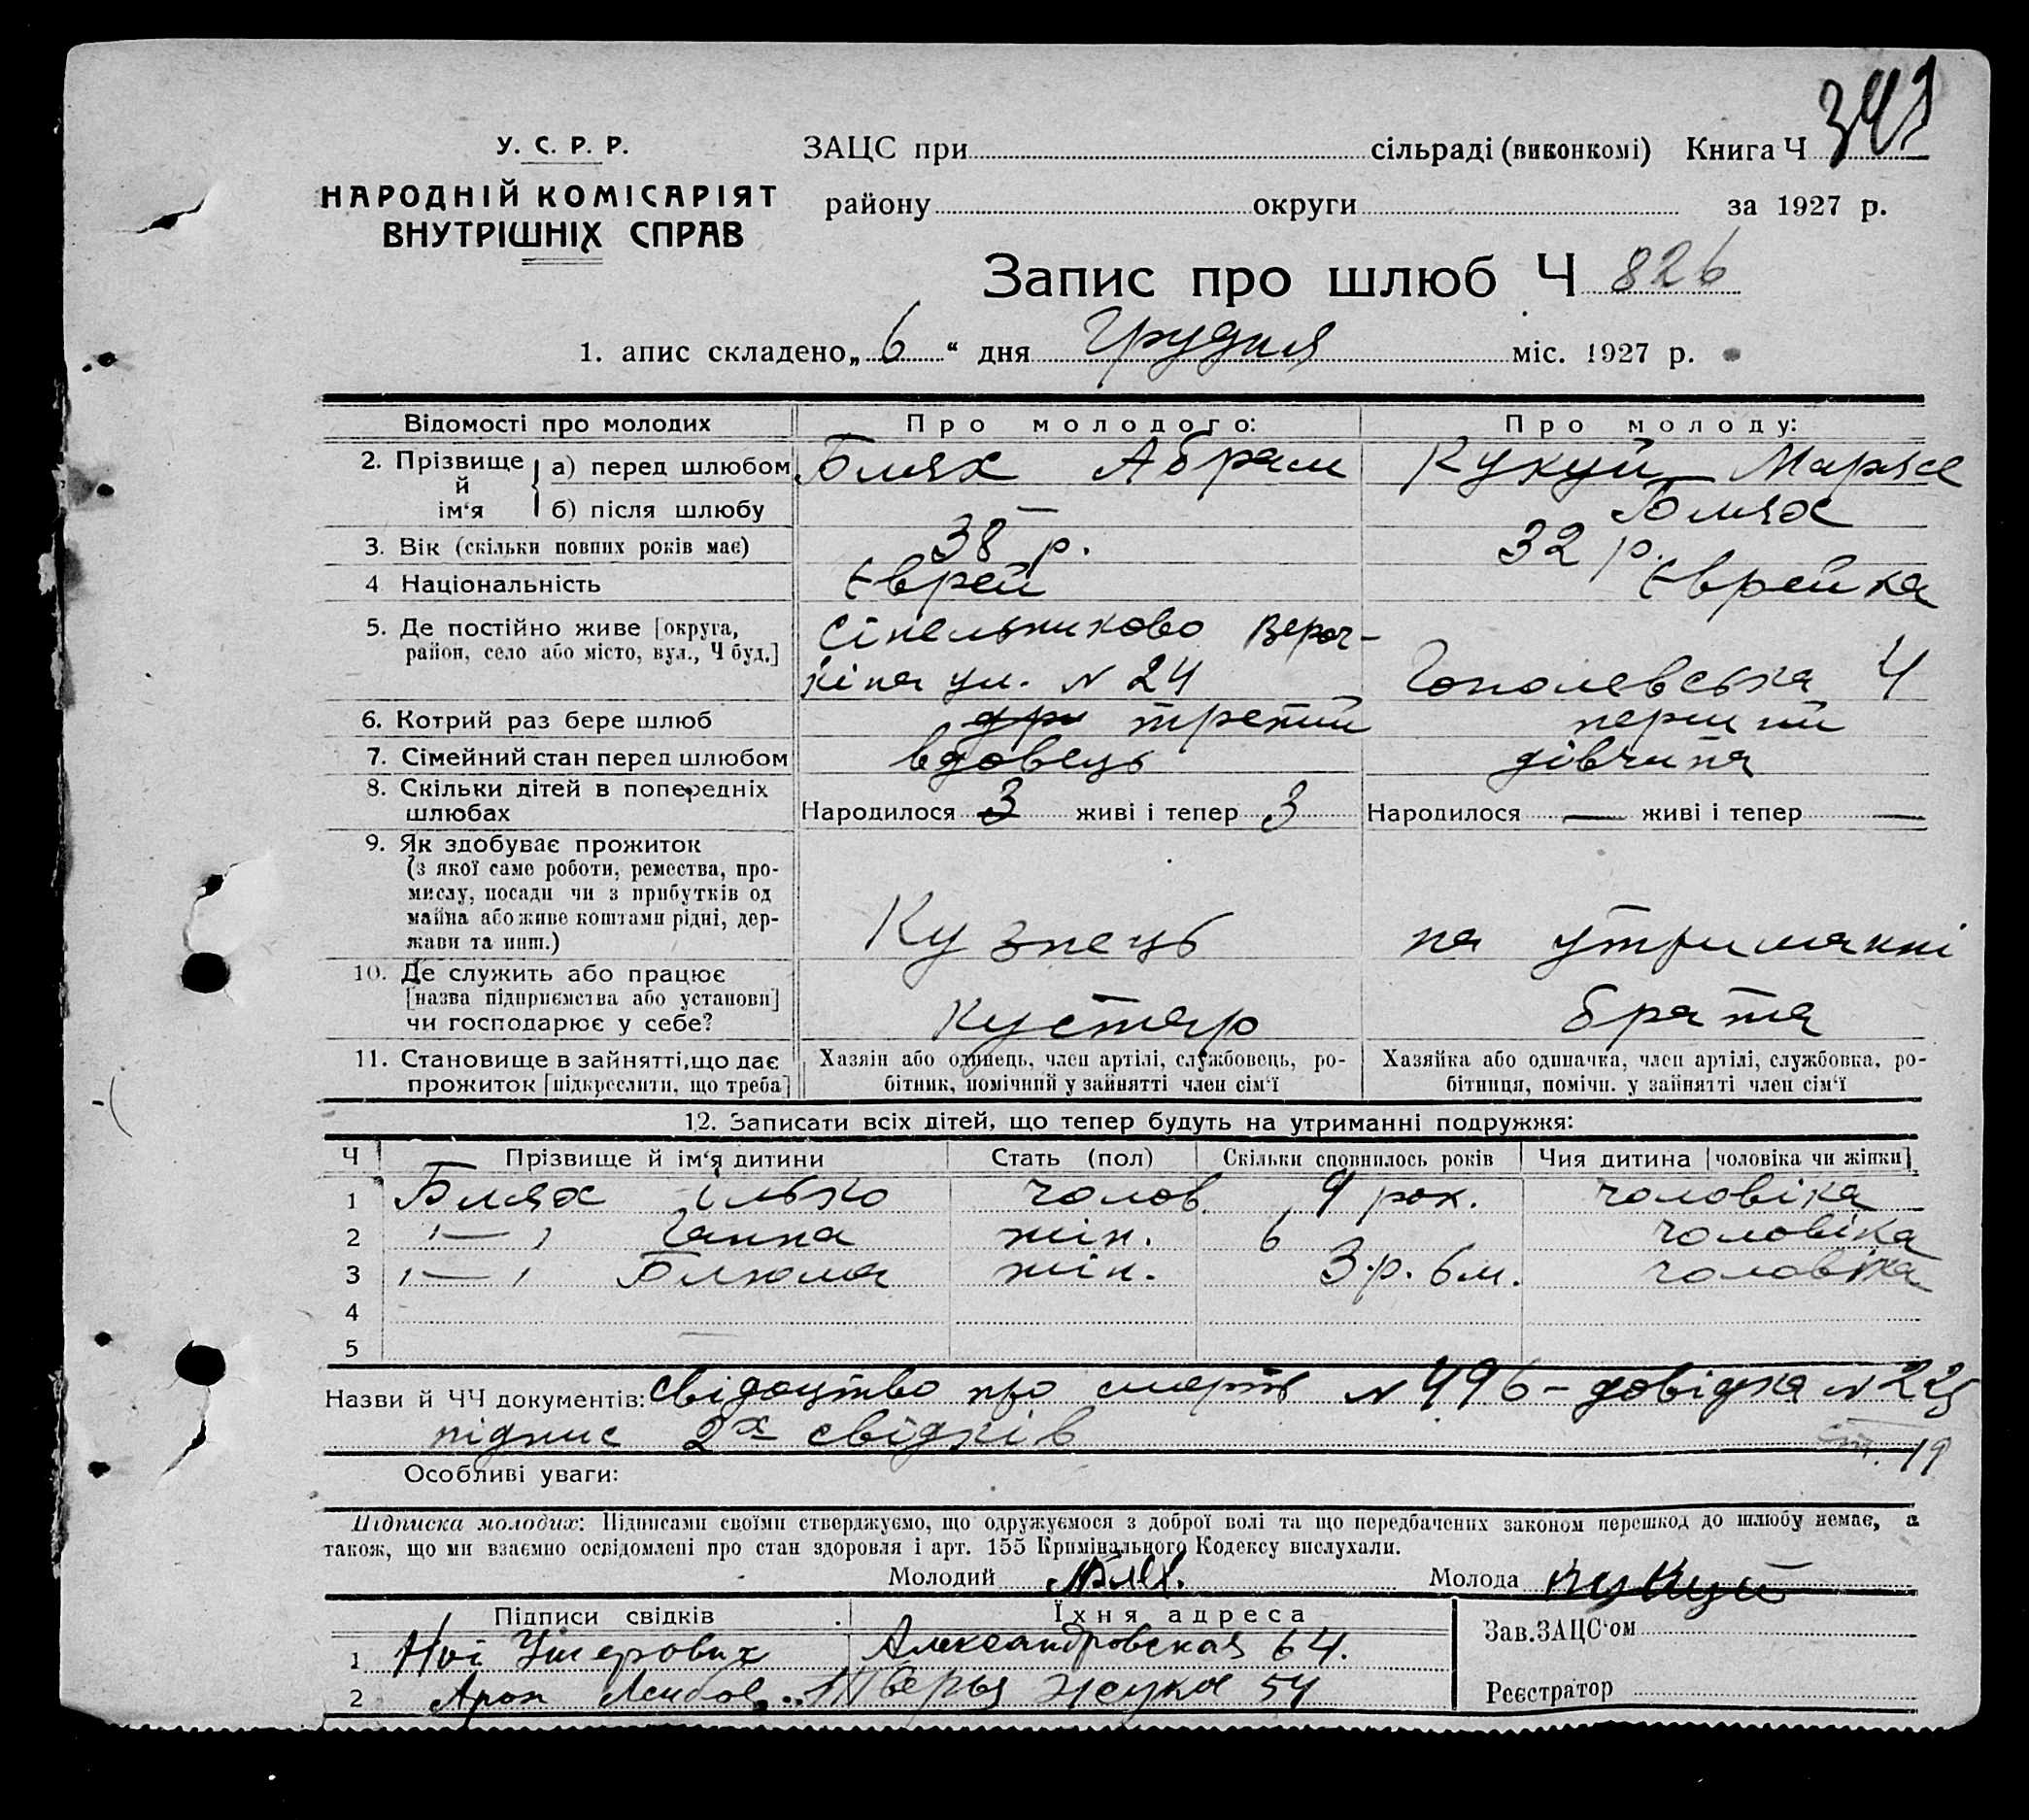 343
У. С. Р. Р.
НАРОДНІЙ КОМІСАРІЯТ
ВНУТРІШНІХ СПРАВ
ЗАЦС при сільраді (виконкомі) Книга Ч
району округи за 1927 р.
Запис про шлюб Ч 826
1. апис складено „ 6 “ дня Грудня міс. 1927 р.
Відомості про молодих Про молодого: Про молоду:
2. Прізвище й ім‘я а) перед шлюбом Блях Абрам Кукуй Мар'ся
б) після шлюбу — Блях
3. Вік (скільки повних років має) 38 р. 32 р.
4 Національність Єврей Єврейка
5. Де постійно живе [округа, Сінельниково
район, село або місто, вул., Ч буд.] ул. N 24 Гоголевська 4
6. Котрий раз бере шлюб дру третий перший
7. Сімейний стан перед шлюбом вдовець дівчина
8. Скільки дітей в попередніх
шлюбах Народилося 3 живі і тепер 3 Народилося — живі і тепер —
9. Як здобуває прожиток
(з якої саме роботи, ремества, про-
мислу, посади чи з прибутків од
майна або живе коштами рідні, дер-
жави та инш.) Кузнець на утриманні
10. Де служить або працює
[назва підприємства або установи]
чи господарює у себе? Кустар брата
11. Становище в зайнятті, що дає Хазяін або одинець, член артілі, службовець, ро- Хазяйка або одиначка, член артілі, службовка, ро-
прожиток [підкреслити, що треба] бітник, помічний у зайнятті член сім‘ї бітниця, помічн. у зайнятті член сім‘ї
12. Записати всіх дітей, що тепер будуть на утриманні подружжя:
Ч Прізвище й ім‘я дитини Стать (пол) Скільки сповнилось років Чия дитина [чоловіка чи жінки]
1 Блях Ілько чолов 9 рок. чоловіка
2 "—" Ганна жін. 6 чоловіка
3 "—" Блюма жін. 3 р. 6 м. чоловіка
4
5
Назви й ЧЧ документів: свідоцтво про смерть N 496 – довідка N 225
підпис 2х свідків ст. 19
Особливі уваги:
Підписка молодих: Підписами своїми стверджуємо, що одружуємося з доброї волі та що передбачених законом перешкод до шлюбу немає, а
також, що ми взаємно освідомлені про стан здоровля і арт. 155 Кримінального Кодексу вислухали.
Молодий Блях. Молода Кукуй
Підписи свідків Їхня адреса
1 Ной Ушерович Александровская 64. Зав. ЗАЦС‘ом
2 Арон Лейбов Жука 54 Реєстратор